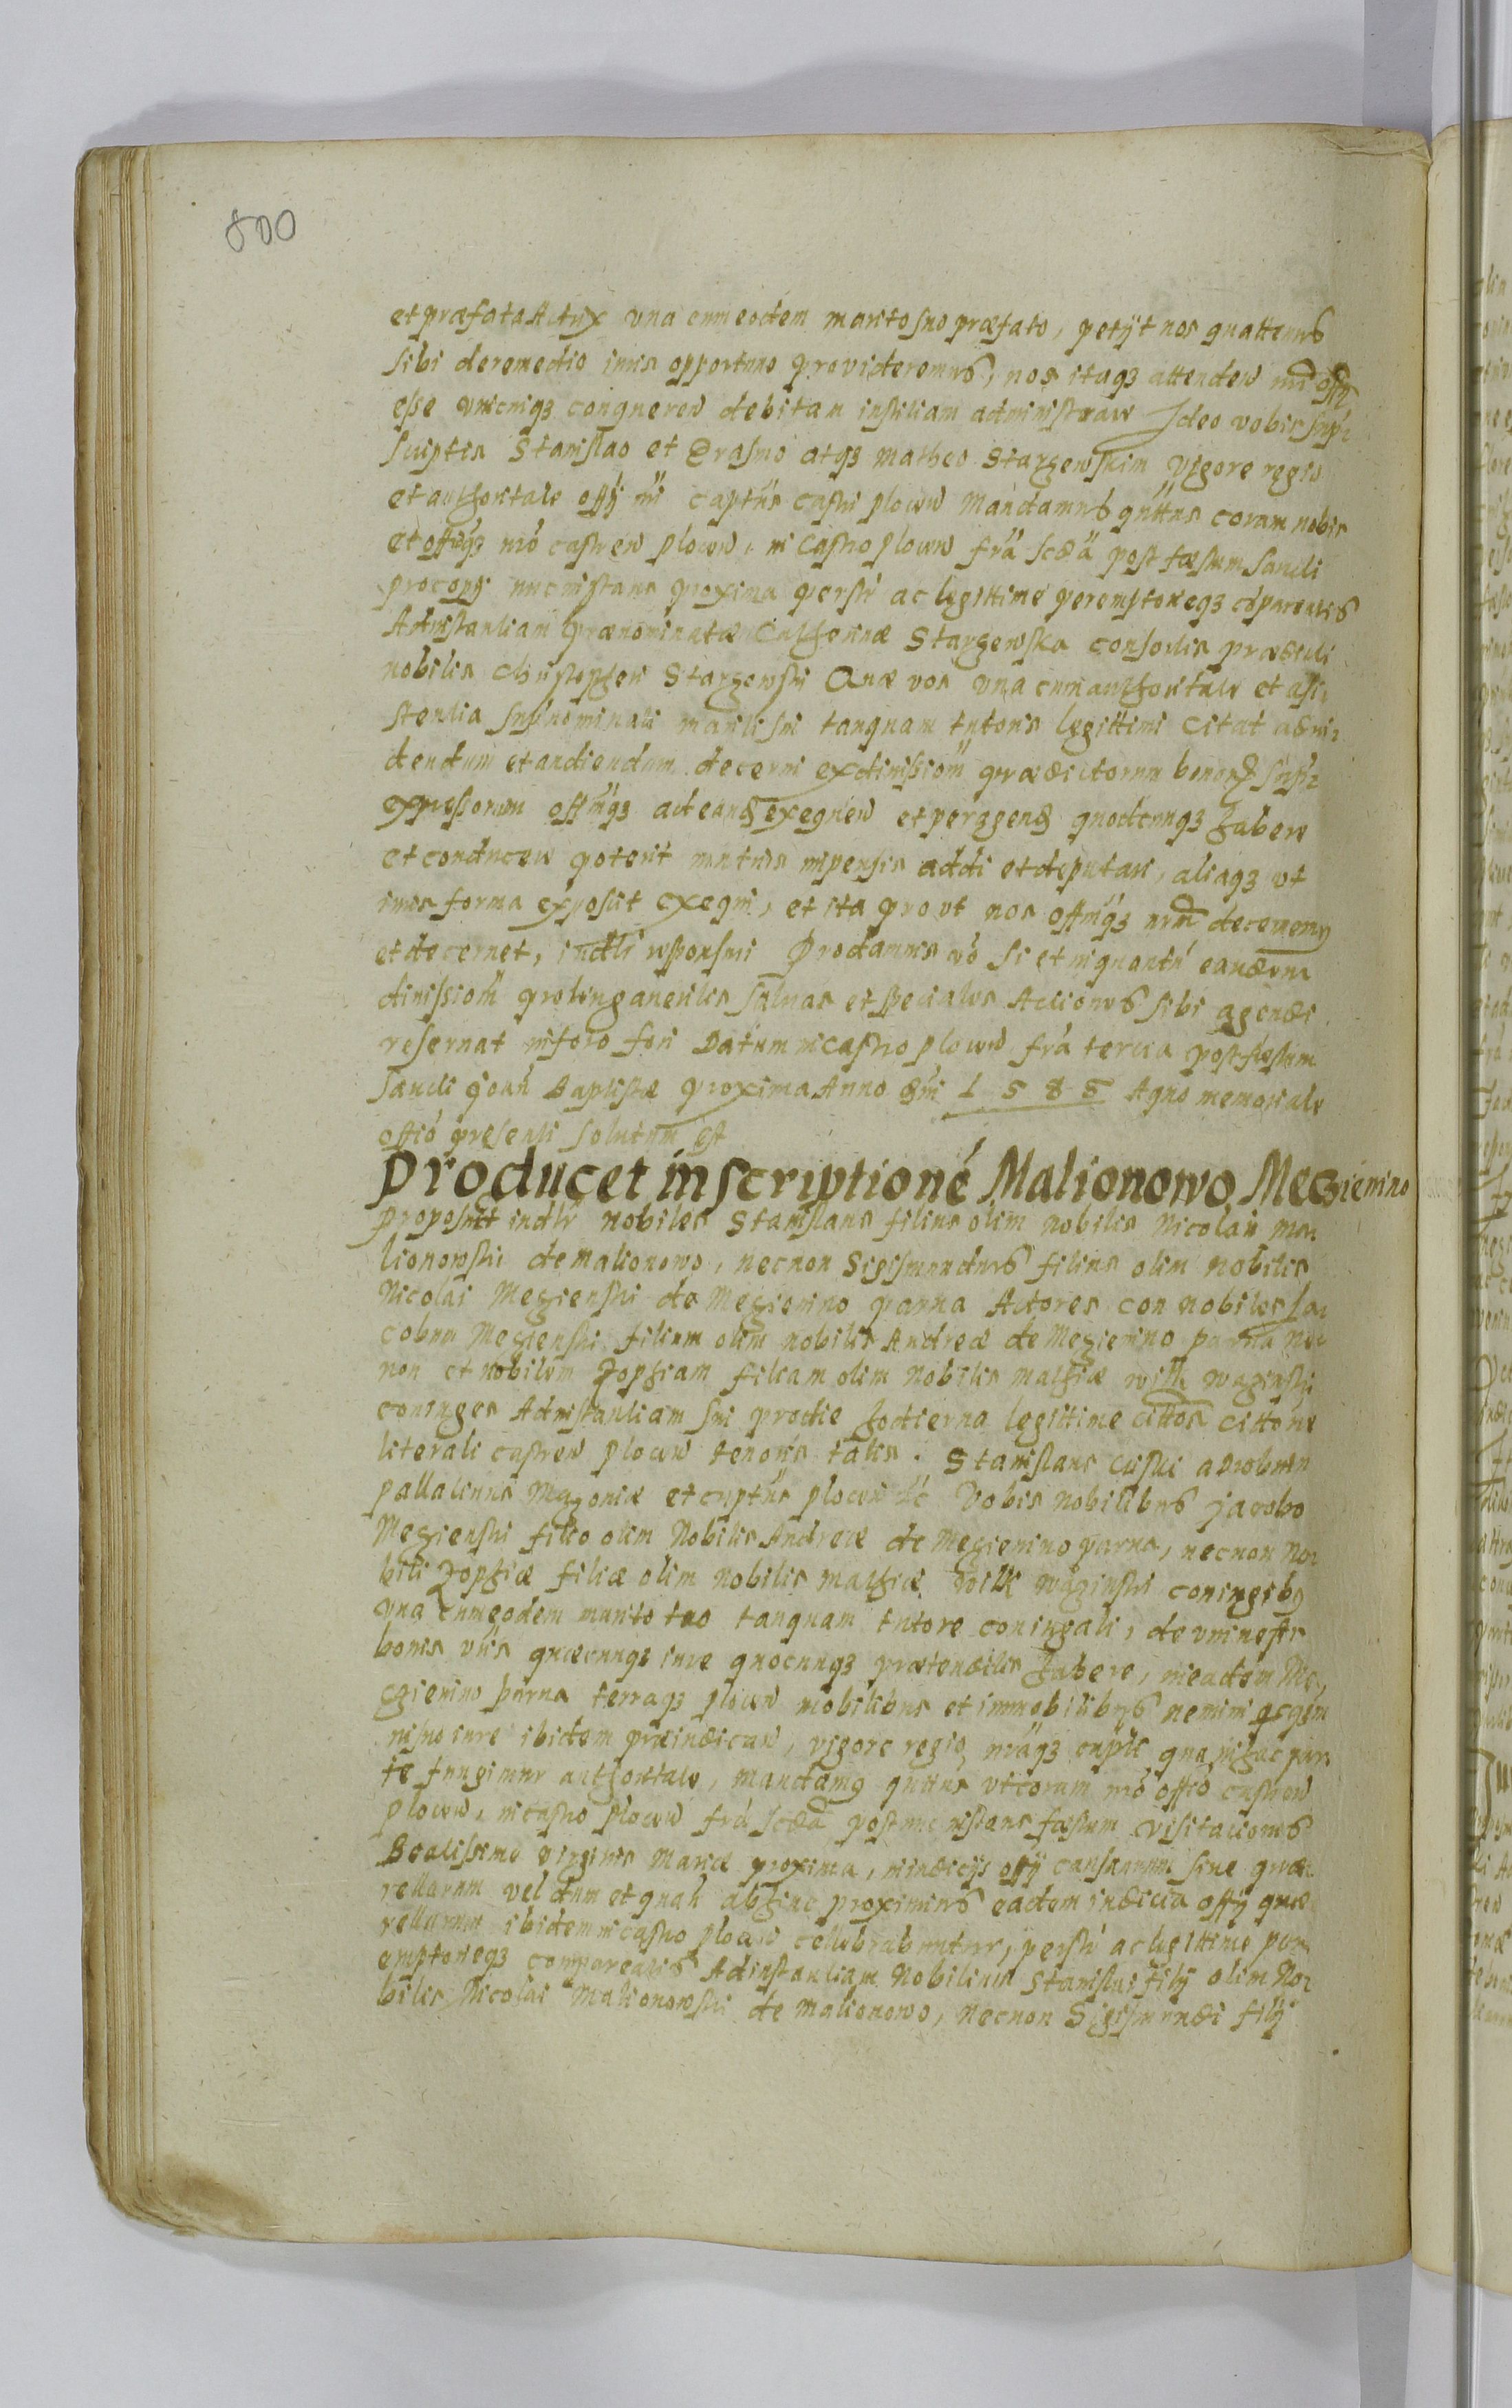 800
et præfata Actrix una cum eodem marito suo præfato, petÿt nos quattenus
sibi de remedio iuris opportuno provideremus, nos itaqȝ attenden nri offÿ
esse unicuiqȝ conqueren debitam iustitiam administrare Ideo vobis supra
scriptis Stanislao et Erasmo atqȝ Matheo Starzewskim vigore regio
et authoritate offÿ nri captus castri plocen Mandamus quttus coram nobis
et offoqȝ nro castren plocen, in Castro plocen fra scda post fæstum Sancti
procopÿ nunc instans proxima personlr ac legittime peremptorieqȝ compareatis
Ad instantiam prænominatæ Catherinæ Starzewska consortis prædicti
nobilis Christopheri Starzewski Quæ vos una cum authoritate et assi
stentia supranominati mariti sui tanquam tutoris legittimi Citat ad vi
dendum et audiendum decerni exdivisiom prædictorum bonorum supra
expressorum offmqȝ ad eandem exequen et peragendam quodcunqȝ habere
et conducere poterit mutuis impensis addi et deputari, aliaqȝ ut
iuris forma exposcit exequi, et ita prout nos offmqȝ nrm decernemus
et decernet, iudtr responsuri Pro damnis vo si et inquantu eandem
divissiom prolonganeritis saluas et speciales Actiones sibi agendi
reseruat in foro fori Datum in Castro plocen fra tercia post fæstum
Sancti Joan Baptistæ proxima Anno dni 1585 A quo memoriale
offio presenti solutum est
Producet inscriptioné Malionowo Megȝiemino
Proposuit iudtr nobiles Stanislaus filius olim nobilis Nicolai Ma
lionowski de Malionowo, necnon Sigismundus filius olim nobilis
Nicolai Megienski de Megiemino parua Actores con nobiles Ja
cobum Megienski filium olim nobilis Andreæ de Megiemino parua nec
non et nobilem Zophiam filiam olim nobilis Mathiæ Wilk
coniuges Ad instantiam sui pro die hodierna legittime cittos cittone
literali castren plocen tenoris talis. Stanislaus
pallatinus Mazoviæ et captus plocen etc Vobis nobilibus Jacobo
Megienski filio olim Nobilis Andreæ de Megiemino parua, necnon No
bili Zophiæ filiæ olim nobilis Mathiæ Wilk coniugibus
una cum eodem marito tuo tanquam tutore coniugali, de uniuersis
bonis vris quæcunqȝ iure quocunqȝ prætenditis habere, in eadem Me
giemino parua terraqȝ plocen mobilibus et immobilibus nemini
in suo iure ibidem præiudicare, vigore regio nraqȝ captli qua in hac par
te fungimur authoritate, mandamus quttus ut coram nro offio castren
plocen, in castro plocen fra scda post nunc instans fæstum visitationis
Beatissime virginis Mariæ proxima, in iudicÿs offÿ causarum siue quæ
rellarum vel dum et quan abhinc proximius eadem iudicia offÿ quæ
rellarum ibidem in castro plocen cellebrabuntur, personlr ac legittime per
emptorieqȝ compareatis Ad instantiam Nobilium Stanislai filÿ olim No
bilis Nicolai Malionowski de Malionowo, necnon Sigismundi filÿ